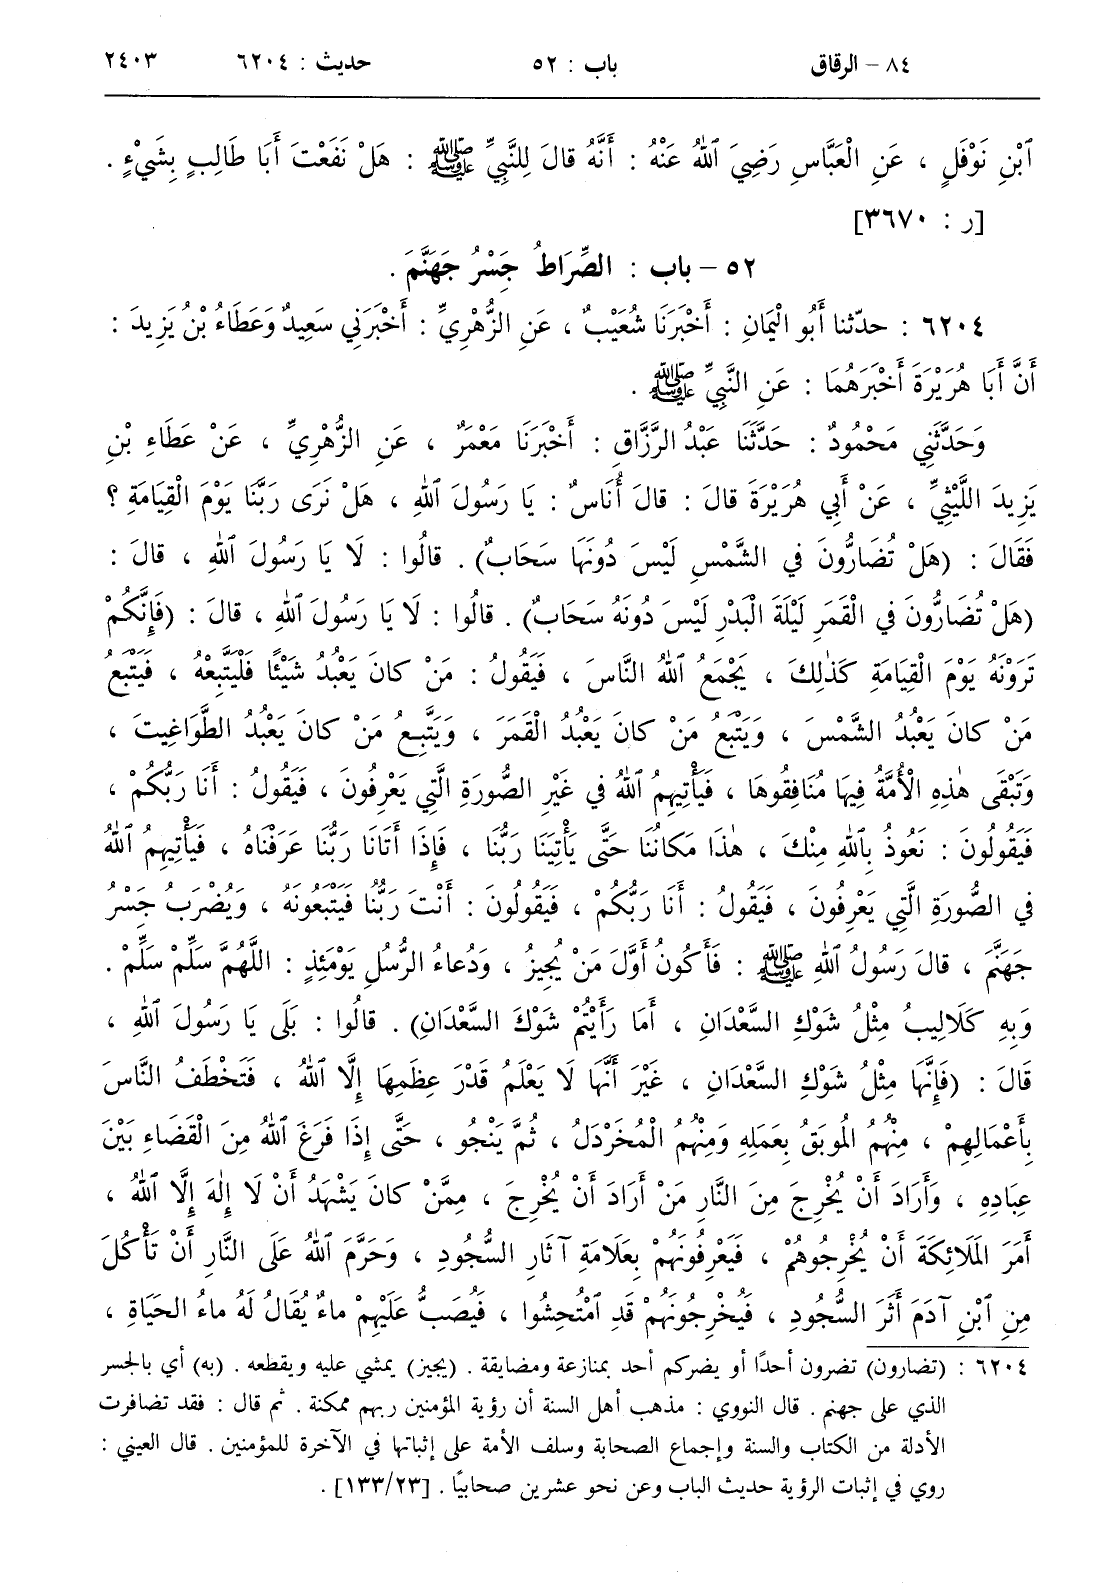 ٨٤ - الرقاق باب : ٥٢ حديث : ٦٢٠٤ ٢٤٠٣
ٱبْنِ نَوْفَلٍ ، عَنِ الْعَبَّاسِ رَضِيَ ٱللهُ عَنْهُ : أَنَّهُ قالَ لِلنَّبِيِّ ﷺ : هَلْ نَفَعْتَ أَبَا طَالِبٍ بِشَيْءٍ .
[ر : ٣٦٧٠]
٥٢ - باب : الصِّرَاطُ جَسْرُ جَهَنَّمَ .
٦٢٠٤ : حدّثنا أَبُو الْيَمَانِ : أَخْبَرَنَا شُعَيْبٌ ، عَنِ الزُّهْرِيِّ : أَخْبَرَنِي سَعِيدٌ وَعَطَاءُ بْنُ يَزِيدَ :
أَنَّ أَبَا هُرَيْرَةَ أَخْبَرَهُمَا : عَنِ النَّبِيِّ ﷺ .
وَحَدَّثَنِي مَحْمُودٌ : حَدَّثَنَا عَبْدُ الرَّزَّاقِ : أَخْبَرَنَا مَعْمَرٌ ، عَنِ الزُّهْرِيِّ ، عَنْ عَطَاءِ بْنِ
يَزِيدَ اللَّيْثِيِّ ، عَنْ أَبِي هُرَيْرَةَ قالَ : قالَ أُنَاسٌ : يَا رَسُولَ ٱللهِ ، هَلْ نَرَى رَبَّنَا يَوْمَ الْقِيَامَةِ ؟
فَقَالَ : (هَلْ تُضَارُّونَ في الشَّمْسِ لَيْسَ دُونَهَا سَحَابٌ) . قالُوا : لَا يَا رَسُولَ ٱللهِ ، قالَ :
(هَلْ تُضَارُّونَ في الْقَمَرِ لَيْلَةَ الْبَدْرِ لَيْسَ دُونَهُ سَحَابٌ) . قالُوا : لَا يَا رَسُولَ ٱللهِ ، قالَ : (فَإِنَّكُمْ
تَرَوْنَهُ يَوْمَ الْقِيَامَةِ كَذٰلِكَ ، يَجْمَعُ ٱللهُ النَّاسَ ، فَيَقُولُ : مَنْ كانَ يَعْبُدُ شَيْئًا فَلْيَتَّبِعْهُ ، فَيَتْبَعُ
مَنْ كانَ يَعْبُدُ الشَّمْسَ ، وَيَتْبَعُ مَنْ كانَ يَعْبُدُ الْقَمَرَ ، وَيَتَّبِعُ مَنْ كانَ يَعْبُدُ الطَّوَاغِيتَ ،
وَتَبْقَى هٰذِهِ الْأُمَّةُ فِيهَا مُنَافِقُوهَا ، فَيَأْتِيهِمُ ٱللهُ في غَيْرِ الصُّورَةِ الَّتِي يَعْرِفُونَ ، فَيَقُولُ : أَنَا رَبُّكُمْ ،
فَيَقُولُونَ : نَعُوذُ بِٱللهِ مِنْكَ ، هٰذَا مَكانُنَا حَتَّى يَأْتِيَنَا رَبُّنَا ، فَإِذَا أَتَانَا رَبُّنَا عَرَفْنَاهُ ، فَيَأْتِيهِمُ ٱللهُ
في الصُّورَةِ الَّتِي يَعْرِفُونَ ، فَيَقُولُ : أَنَا رَبُّكُمْ ، فَيَقُولُونَ : أَنْتَ رَبُّنَا فَيَتْبَعُونَهُ ، وَيُضْرَبُ جَسْرُ
جَهَنَّمَ ، قالَ رَسُولُ ٱللهِ ﷺ : فَأَكُونُ أَوَّلَ مَنْ يُجِيزُ ، وَدُعاءُ الرُّسُلِ يَوْمَئِذٍ : اللَّهُمَّ سَلِّمْ سَلِّمْ .
وَبِهِ كَلَالِيبُ مِثْلُ شَوْكِ السَّعْدَانِ ، أَمَا رَأَيْتُمْ شَوْكَ السَّعْدَانِ) . قالُوا : بَلَى يَا رَسُولَ ٱللهِ ،
قالَ : (فَإِنَّهَا مِثْلُ شَوْكِ السَّعْدَانِ ، غَيْرَ أَنَّهَا لَا يَعْلَمُ قَدْرَ عِظَمِهَا إِلَّا ٱللهُ ، فَتَخْطَفُ النَّاسَ
بِأَعْمَالِهِمْ ، مِنْهُمُ المُوبَقُ بِعَمَلِهِ وَمِنْهُمُ الْمُخَرْدَلُ ، ثُمَّ يَنْجُو ، حَتَّى إِذَا فَرَغَ ٱللهُ مِنَ الْقَضَاءِ بَيْنَ
عِبَادِهِ ، وَأَرَادَ أَنْ يُخْرِجَ مِنَ النَّارِ مَنْ أَرَادَ أَنْ يُخْرِجَ ، مِمَّنْ كانَ يَشْهَدُ أَنْ لَا إِلٰهَ إِلَّا ٱللهُ ،
أَمَرَ المَلَائِكَةَ أَنْ يُخْرِجُوهُمْ ، فَيَعْرِفُونَهُمْ بِعَلَامَةِ آثَارِ السُّجُودِ ، وَحَرَّمَ ٱللهُ عَلَى النَّارِ أَنْ تَأْكُلَ
مِنِ ٱبْنِ آدَمَ أَثَرَ السُّجُودِ ، فَيُخْرِجُونَهُمْ قَدِ ٱمْتُحِشُوا ، فَيُصَبُّ عَلَيْهِمْ ماءٌ يُقَالُ لَهُ ماءُ الحَيَاةِ ،
٦٢٠٤ : (تضارون) تضرون أحدًا أو يضركم أحد بمنازعة ومضايقة . (يجيز) يمشي عليه ويقطعه . (به) أي بالجسر
الذي على جهنم . قال النووي : مذهب أهل السنة أن رؤية المؤمنين ربهم ممكنة . ثم قال : فقد تضافرت
الأدلة من الكتاب والسنة وإجماع الصحابة وسلف الأمة على إثباتها في الآخرة للمؤمنين . قال العيني :
روي في إثبات الرؤية حديث الباب وعن نحو عشرين صحابيًا . [١٣٣/٢٣] .